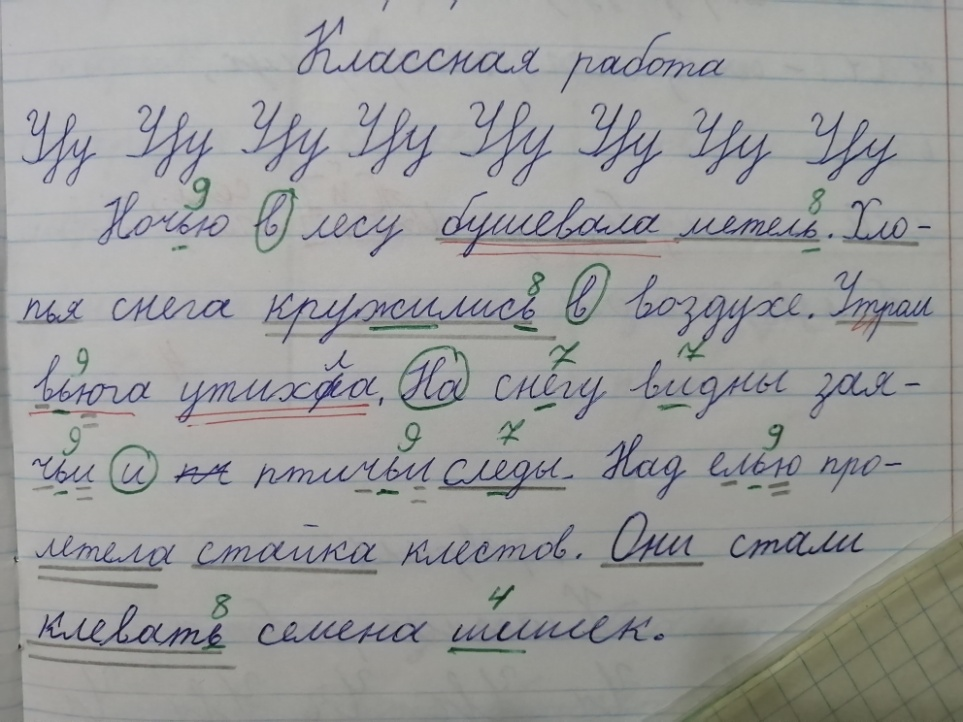 Классная работа
Цу Цу Цу Цу Цу Цу Цу Цу
9 8
Ночью в лесу бушевала метель. Хло-
8
пья снега кружились в воздухе. Утром
9 л 7 7
вьюга утихла. На снегу видны зая-
9 9 7 9
чьи и птичьи следы. Над елью про-
летела стайка клестов. Они стали
8 4
клевать семена шишек.